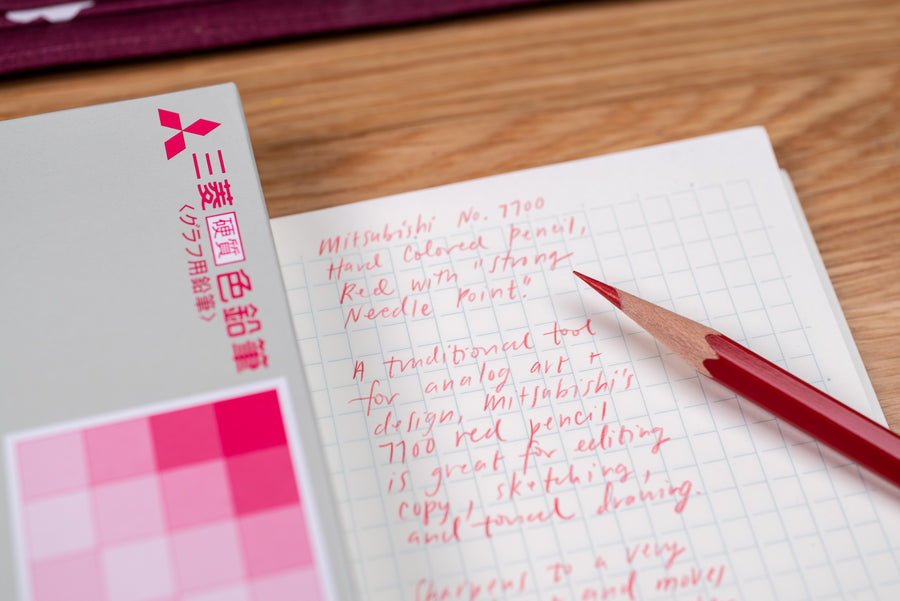 三菱硬質色鉛筆
〈グラフ用鉛筆〉
Mitsubishi No. 7700
Hard Colored pencil,
Red with "strong
Needle Point."
A traditional tool
for analog art +
design, Mitsubishi's
7700 red pencil
is great for editing
copy, sketching,
and toneal drawing.
Sharpens to a very
and moves